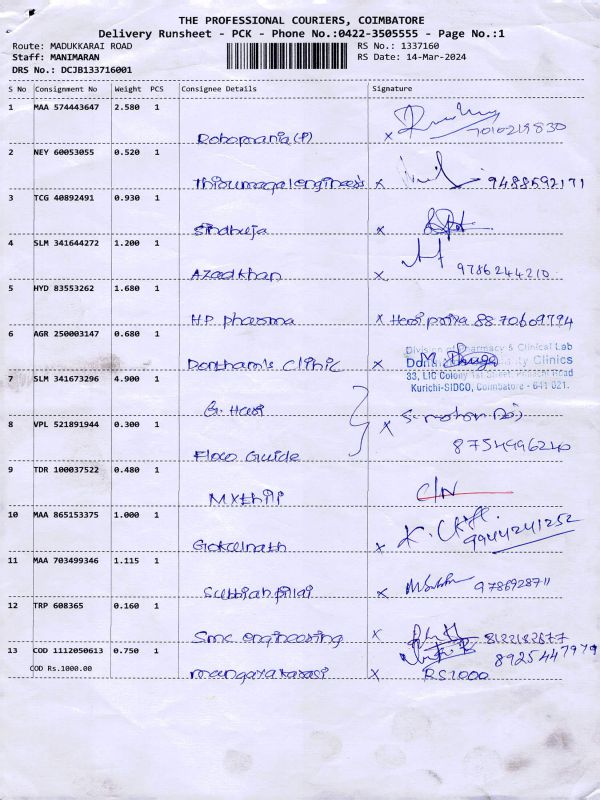 THE PROFESSIONAL COURIERS, COIMBATORE
Delivery Runsheet - PCK - Phone No.:0422-3505555 - Page No.:1
Route: MADUKKARAI ROAD
RS No.: 1337160
Staff: MANIMARAN
RS Date: 14-Mar-2024
DRS No.: DCJB133716001
S No Consignment No Weight PCS Consignee Details Signature
1 MAA 574443647 2.580 1
Robopmania (P) x 7010219830
2 NEY 60053055 0.520 1
Thirumagal engineers x 9488592171
3 TCG 40892491 0.930 1
Sindhuja x
4 SLM 341644272 1.200 1
Azad khan x 9786244210
5 HYD 83553262 1.680 1
H.P. pharma x Hari priya 8870609794
6 AGR 250003147 0.680 1
Division of Pharmacy & Clinical Lab
Dontham's clinic x Clinics
33, LIC Colony Road
Kurichi-SIDCO, Coimbatore - 641 021.
7 SLM 341673296 4.900 1
G. Hari
8 VPL 521891944 0.300 1
x 8754996240
Flow Guide
9 TDR 100037522 0.480 1
Mythili C/N
10 MAA 865153375 1.000 1
Gokulnath x 9944241252
11 MAA 703499346 1.115 1
Subbiah pillai x 9786928711
12 TRP 608365 0.160 1
Smc engineering x 8122182677
13 COD 1112050613 0.750 1
8925447979
COD Rs.1000.00
mangayakarasi x RS 1000